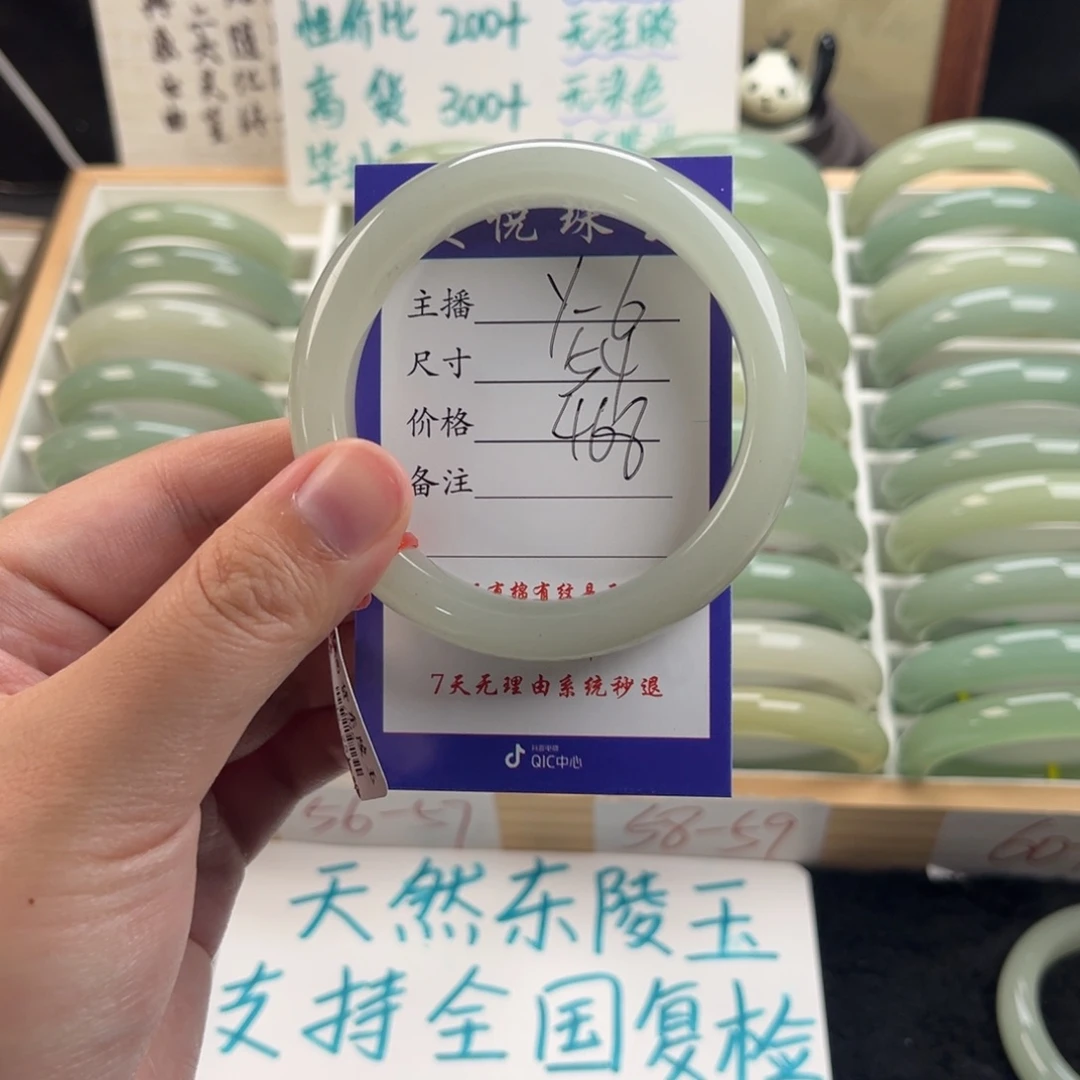 性价比 200+ 无注胶
高货 300+ 无染色
悦珠
主播 Y-6
尺寸 54
价格 468
备注
有棉有纹
7天无理由系统秒退
抖音电商
QIC中心
56-57
58-59
60
天然东陵玉
支持全国复检